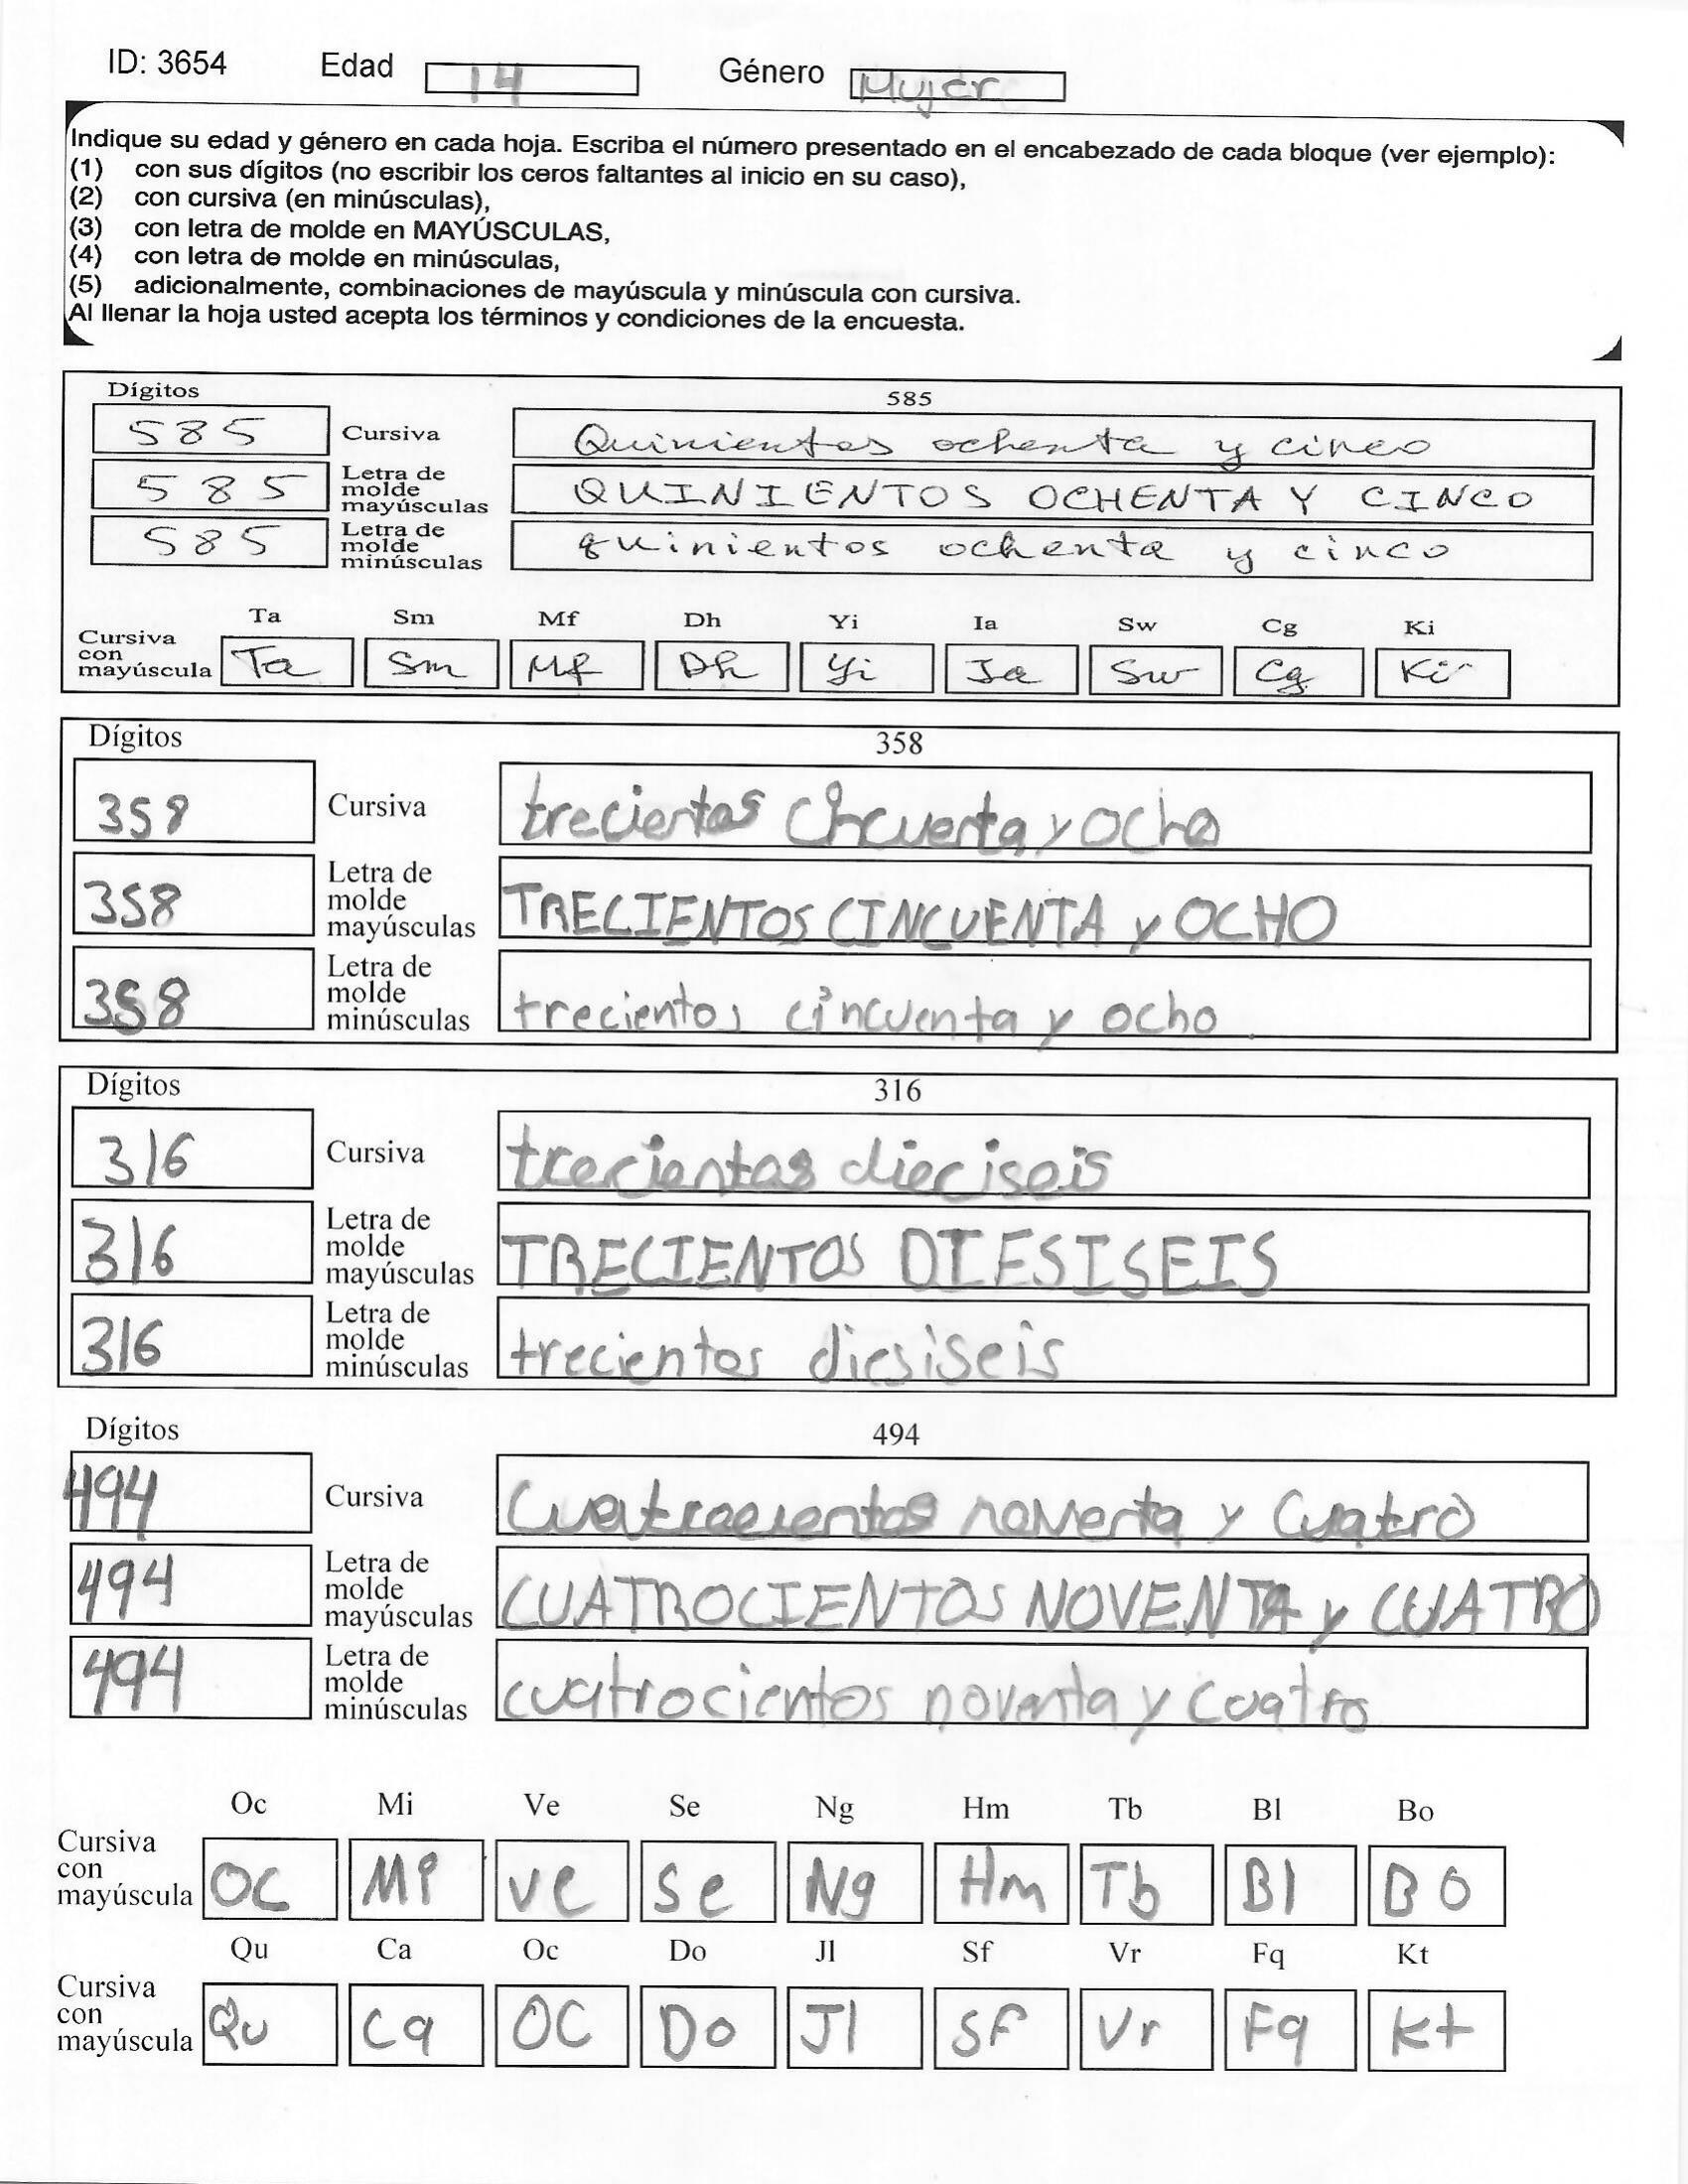 ID: 3654 Edad 14 Género Mujer
Indique su edad y género en cada hoja. Escriba el número presentado en el encabezado de cada bloque (ver ejemplo):
(1) con sus dígitos (no escribir los ceros faltantes al inicio en su caso),
(2) con cursiva (en minúsculas),
(3) con letra de molde en MAYÚSCULAS,
(4) con letra de molde en minúsculas,
(5) adicionalmente, combinaciones de mayúscula y minúscula con cursiva.
Al llenar la hoja usted acepta los términos y condiciones de la encuesta.
Dígitos 585
585 Cursiva Quinientos ochenta y cinco
585 Letra de molde mayúsculas QUINIENTOS OCHENTA Y CINCO
585 Letra de molde minúsculas quinientos ochenta y cinco
Ta Sm Mf Dh Yi Ia Sw Cg Ki
Cursiva con mayúscula Ta Sm Mf Dh Yi Ia Sw Cg Ki
Dígitos 358
358 Cursiva trecientos cincuenta y ocho
358 Letra de molde mayúsculas TRECIENTOS CINCUENTA y OCHO
358 Letra de molde minúsculas trecientos cincuenta y ocho
Dígitos 316
316 Cursiva trecientos dieciseis
316 Letra de molde mayúsculas TRECIENTOS DIESISEIS
316 Letra de molde minúsculas trecientos diesiseis
Dígitos 494
494 Cursiva Cuatrocientos noventa y Cuatro
494 Letra de molde mayúsculas CUATROCIENTOS NOVENTA y CUATRO
494 Letra de molde minúsculas cuatrocientos noventa y cuatro
Oc Mi Ve Se Ng Hm Tb Bl Bo
Cursiva con mayúscula OC Mi Ve Se Ng Hm Tb Bl BO
Qu Ca Oc Do Jl Sf Vr Fq Kt
Cursiva con mayúscula Qu Ca OC Do Jl Sf Vr Fq Kt